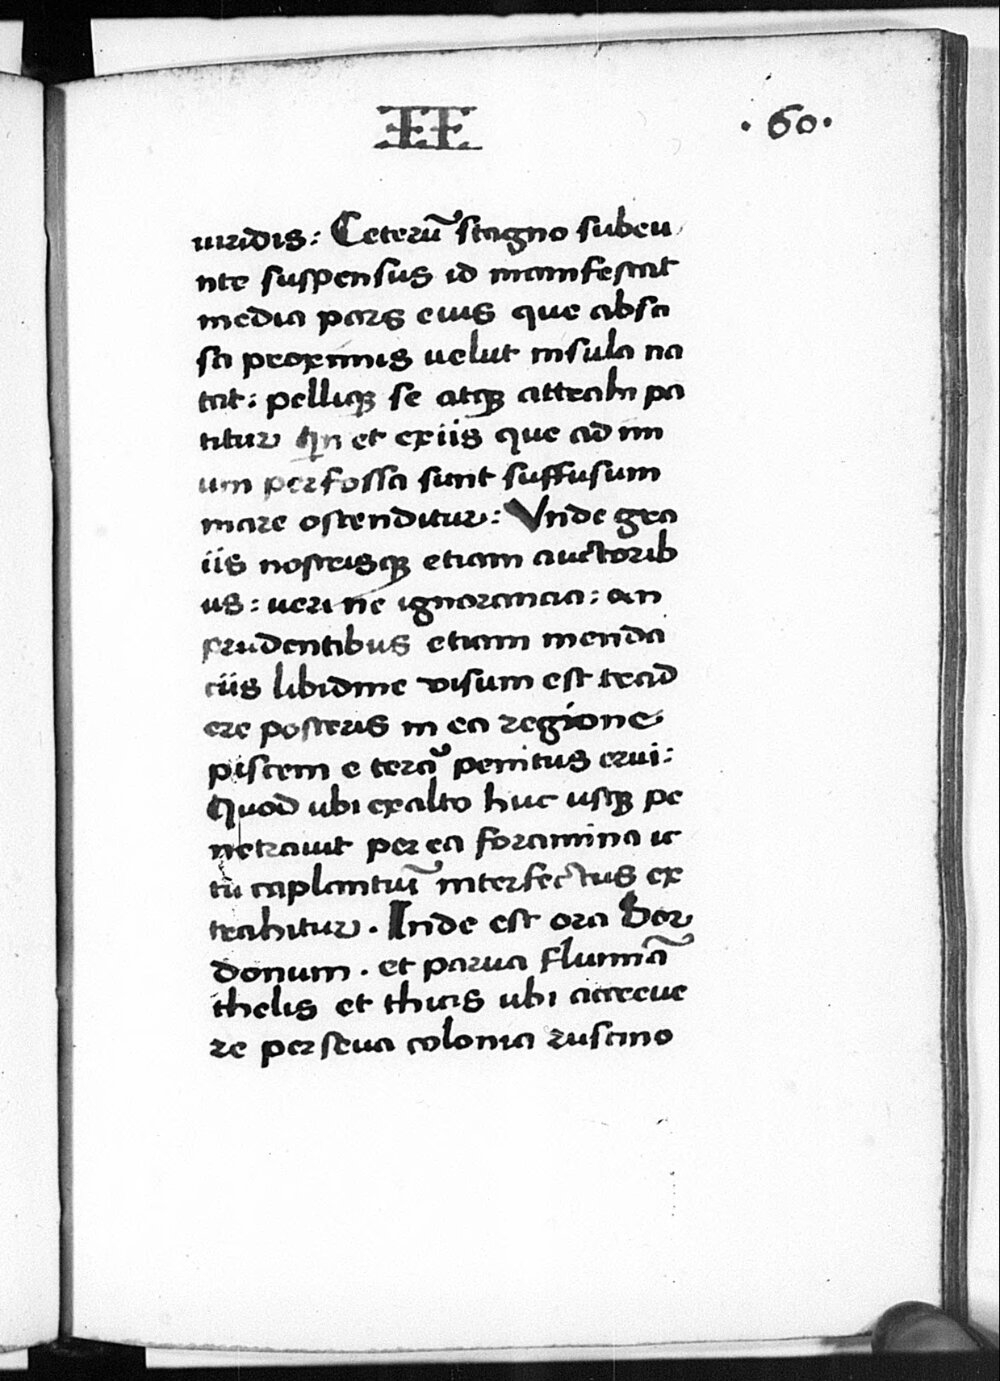 II
.60.
uiridis: Ceterũ stagno subeu
nte suspensus id manifestat
media pars eius que absci
sa proximis uelut insula na
tat: pelliqꝫ se atqꝫ attrahi pa
titur Qn et exiis que ad im
um perfossa sunt suffusum
mare ostenditur: Vnde gra
iis nostrisqꝫ etiam auctorib
us: ueri ne ignorancia: an
prudentibus etiam menda
ciis libidine visum est trad
ere posteris in ea regione
piscem e terã penitus erui:
Quod ubi exalto huc usqꝫ pe
netrauit per ea foramina ic
tu captantiũ interfectus ex
trahitur. Inde est ora Sor
donum. et parua fluminã
thelis et thicis ubi accreue
re perseua colonia ruscino